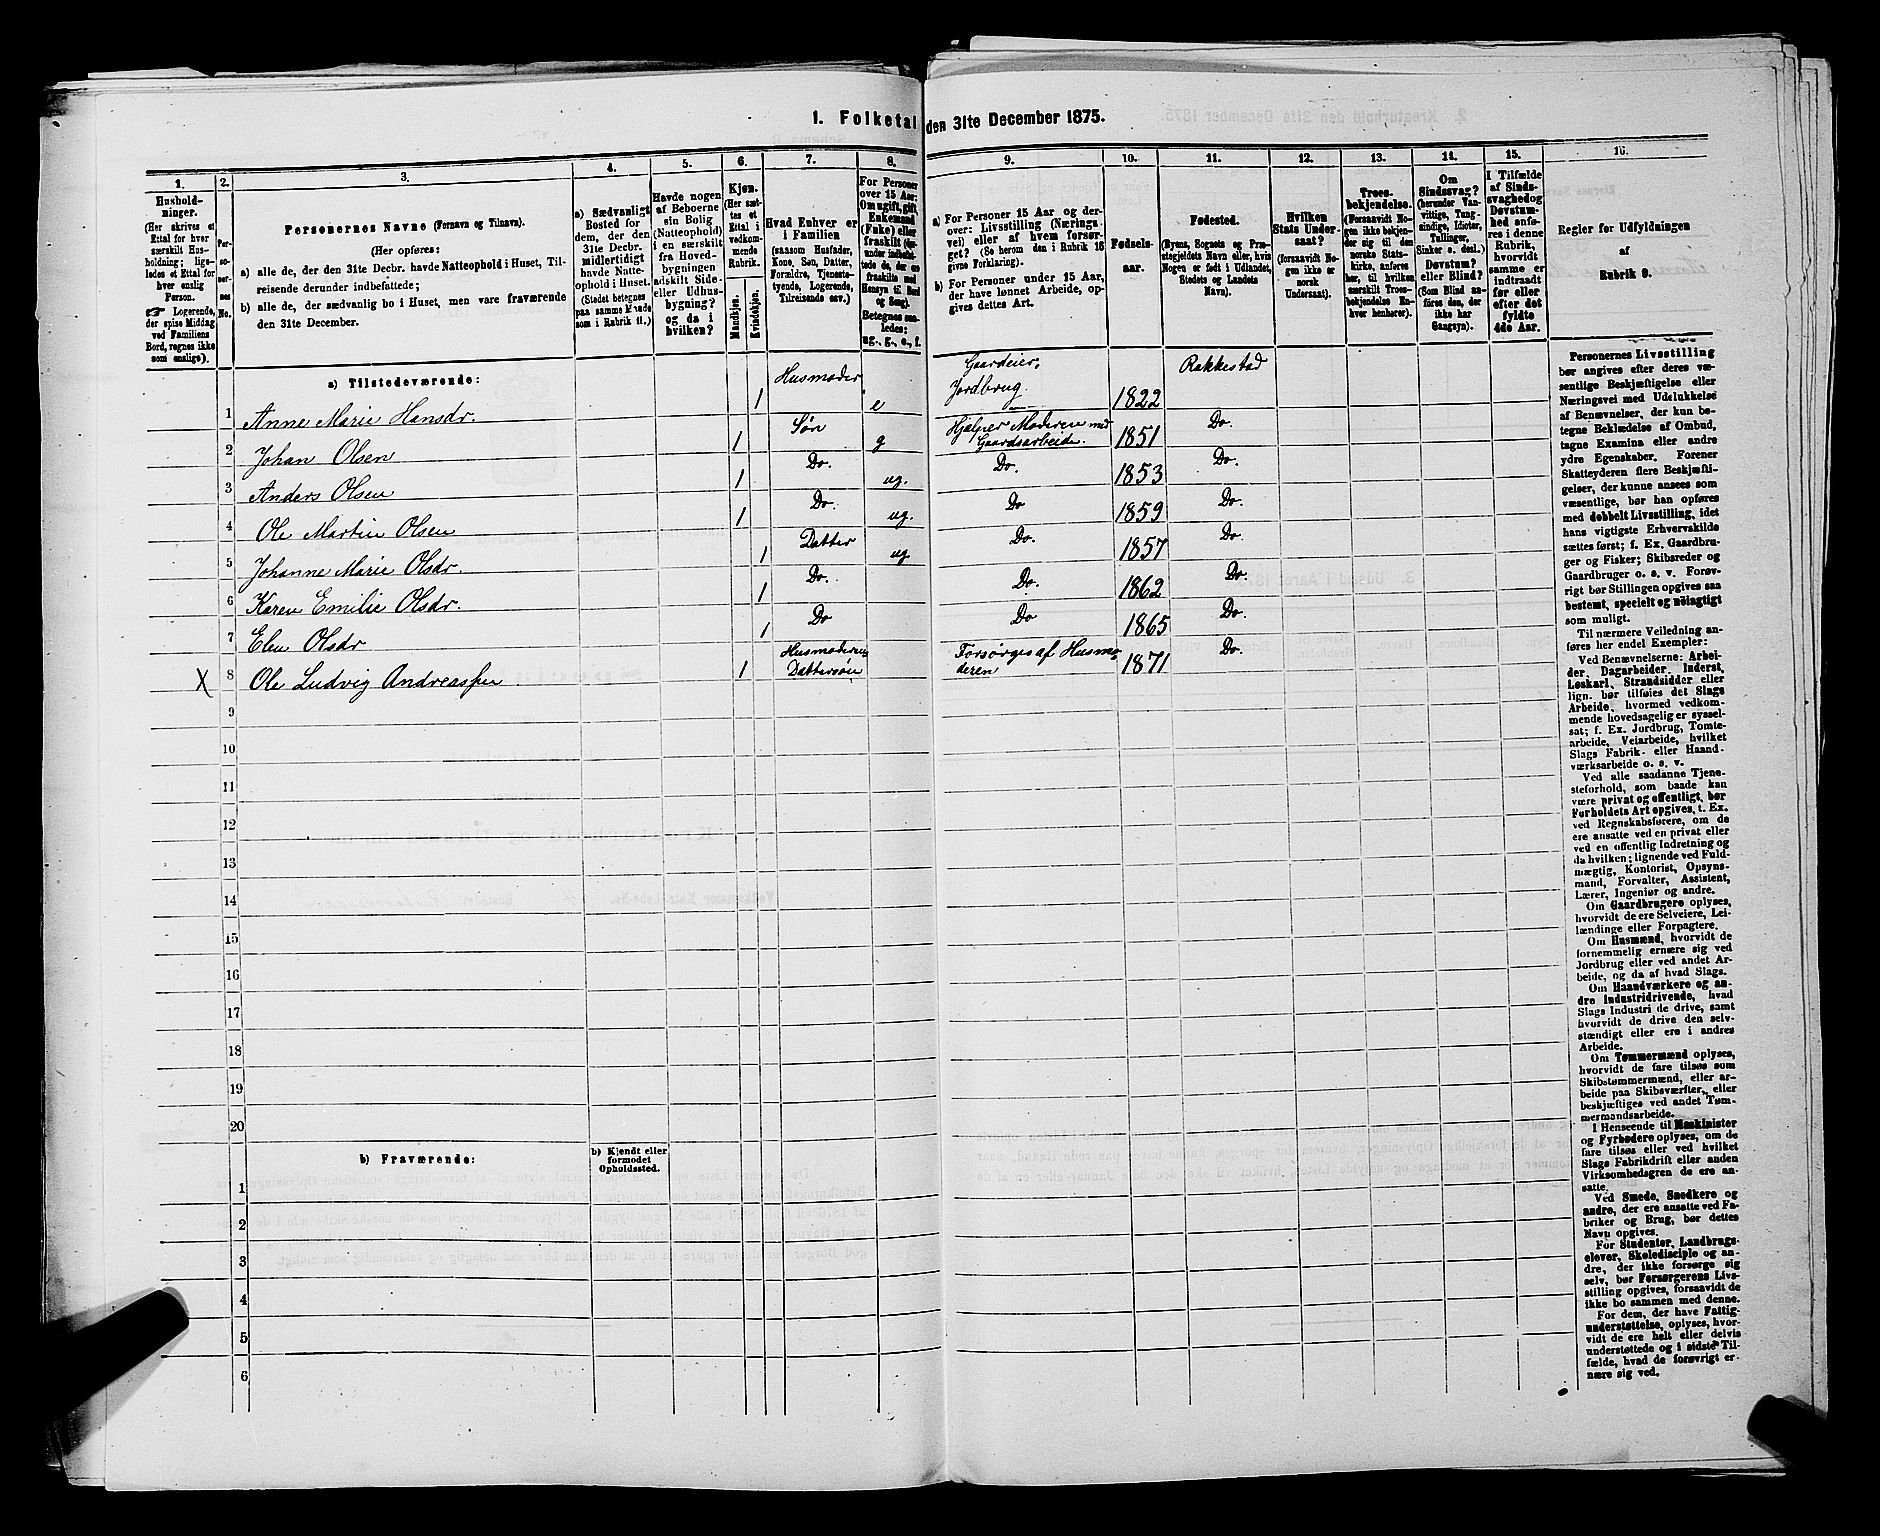 1. Folketal den 31te December 1875.
1. 2. 3. 4. 5. 6. 7. 8. 9. 10. 11. 12. 13. 14. 15. 16.
Husholdninger.
(Her skrives et
Ettal for hver
særskilt Husholdning;
ligeledes et Ettal for
hver enslig
Person.
☛ Logerende,
der spise Middag
ved Familiens
Bord, regnes ikke
som enslige).
Personernes No.
Personernes Navne (Fornavn og Tilnavn).
(Her opføres:
a) alle de, der den 31te Decbr. havde Natteophold i Huset, Tilreisende derunder indbefattede;
b) alle de, der sædvanlig bo i Huset, men vare fraværende
den 31te December.
a) Sædvanligt
Bosted for
dem, der den
31te Decbr.
midlertidigt
havde Natteophold i Huset.
(Stedet betegnes
paa samme Maade
som i Rubrik 11.)
Havde nogen
af Beboerne
ein Bolig
(Natteophold)
i en særskilt
fra Hovedbygningen
adskilt Side-
eller Udhusbygning?
og da i
hvilken?
Kjøn.
(Her sættes et
Ettal i
vedkommende
Rubrik.
Mandkjøn.
Kvindekjøn.
Hvad Enhver er
i Familien
(saasom Husfader,
Kone, Søn, Datter,
Forældre, Tjenestetyende, Logerende,
Tilreisende osv.)
For Personer
over 15 Aar:
Om ugift, gift,
Enkemand
(Enke) eller
fraskilt (derunder indbefattede de, der ere
fraskilte med
Hensyn til Bord
og Seng).
Betegnes saaledes:
ug., g., e., f.
a) For Personer 15 Aar og derover: Livsstilling (Næringsvei) eller af hvem forsørget? (Se herom den i Rubrik 16
givne Forklaring).
b) For Personer under 15 Aar,
der have lønnet Arbeide, opgives dettes Art.
Fødselsaar.
Fødested.
(Byens, Sognets og Præstegjeldets Navn eller, hvis
Nogen er født i Udlandet,
Stedets og Landets
Navn).
Hvilken
Stats Undersaat?
(forsaavidt Nogen ikke er
norsk
Undersaat).
Troesbekjendelse.
(Forsaavidt Nogen ikke bekjender sig til den
norske Statskirke, anføres
her, til hvilken
særskilt Troesbekjendelse Enhver henhører).
Om
Sindssvag?
(herunder Vanvittige, Tungsindige, Idioter,
Tullinger,
Sinker o. desl.)
Døvstum?
eller Blind?
(Som Blind anføres den, der
ikke har
Gangsyn).
I Tilfælde
af Sindssvaghed og
Døvstumhed anføres i denne
Rubrik,
hvorvidt
samme er
indtraadt
før eller
efter det
fyldte
4de Aar.
Regler for Udfyldningen
af
Rubrik 9.
a) Tilstedeværende:
1 Anne Marie Hansdr. 1 Husmoder e Gaardeier, Jordbrug. 1822 Rakkestad
2 Johan Olsen 1 Søn g Hjælper Moderen med Gaardsarbeide. 1851 Do.
3 Anders Olsen 1 Do. ug. Do. 1853 Do.
4 Ole Martin Olsen 1 Do. ug. Do 1859 Do.
5 Johanne Marie Olsdr. 1 Datter ug Do. 1857 Do.
6 Karen Emilie Olsdr. 1 Do. Do. 1862 Do.
7 Elen Olsdr 1 Do Do 1865 Do.
X 8 Ole Ludvig Andreassen 1 Husmoderens Dattersøn Forsørges af Husmoderen 1871 Do.
9
10
11
12
13
14
15
16
17
18
19
20
b) Fraværende:
b) Kjendt eller
formodet
Opholdssted.
1
2
3
4
5
6
Personernes Livsstilling
bør angives efter deres væsentlige Beskjæftigelse eller
Næringsvei med Udelukkelse
af Benævnelser, der kun betegne Beklædelse af Ombud,
tagne Examina eller andre
ydre Egenskaber. Forener
Skatteyderen flere Beskjæftigelser, der kunne ansees som
væsentlige, bør han opføres
med dobbelt Livsstilling, idet
hans vigtigste Erhvervskilde
sættes først; f. Ex. Gaardbruger og Fisker; Skibsreder og
Gaardbruger o. s. v. Forøvrigt bør Stillingen opgives saa
bestemt, specielt og nøiagtigt
som muligt.
Til nærmere Veiledning anføres her endel Exempler:
Ved Benævnelserne: Arbeider, Dagarbeider, Inderst,
Løskarl, Strandsidder eller
lign. bør tilføies det Slags
Arbeide, hvormed vedkommende hovedsagelig er sysselsat; f. Ex. Jordbrug, Tomtearbeide, Veiarbeide, hvilket
Slags Fabrik- eller Haandværksarbeide o. s. v.
Ved alle saadanne Tjenesteforhold, som baade kan
være privat og offentligt, bør
Forholdets Art opgives, t. Ex.
ved Regnskabsførere, om de
ere ansatte ved en privat eller
ved en offentlig Indretning og
da hvilken; lignende ved Fuldmægtig, Kontorist, Opsynsmand, Forvalter, Assistent,
Lærer, Ingeniør og andre.
Om Gaardbrugere oplyses,
hvorvidt de ere Selveiere, Leilændinge eller Forpagtere.
Om Husmænd, hvorvidt de
fornemmelig ernære sig ved
Jordbrug eller ved andet Arbeide, og da af hvad Slags.
Om Haandværkere og andre Industridrivende, hvad
Slags Industri de drive, samt
hvorvidt de drive den selvstændigt eller ere i andres
Arbeide.
Om Tømmermænd oplyses,
hvorvidt de fare tilsøs som
Skibstømmermænd, eller arbeide paa Skibsværfter, eller
beskjæftiges ved andet Tømmermandsarbeide.
I Henseende til Maskinister
og Fyrbødere oplyses, om de
fare tilsøs eller ved hvilket
Slags Fabrikdrift eller anden
Virksomhedsgren de ere ansatte.
Ved Smede, Snedkere og
andre, der ere ansatte ved Fabriker og Brug, bør dettes
Navn opgives.
For Studenter, Landbrugselever, Skoledisciple og andre, der ikke forsørge sig
selv, bør Forsørgerens Livsstilling opgives, forsaavidt de
ikke bo sammen med denne.
For dem, der have Fattigunderstøttelse, oplyses, hvorvidt de ere helt eller delvis
understøttede og i sidste Tilfælde, hvad de forøvrigt ernære sig ved.